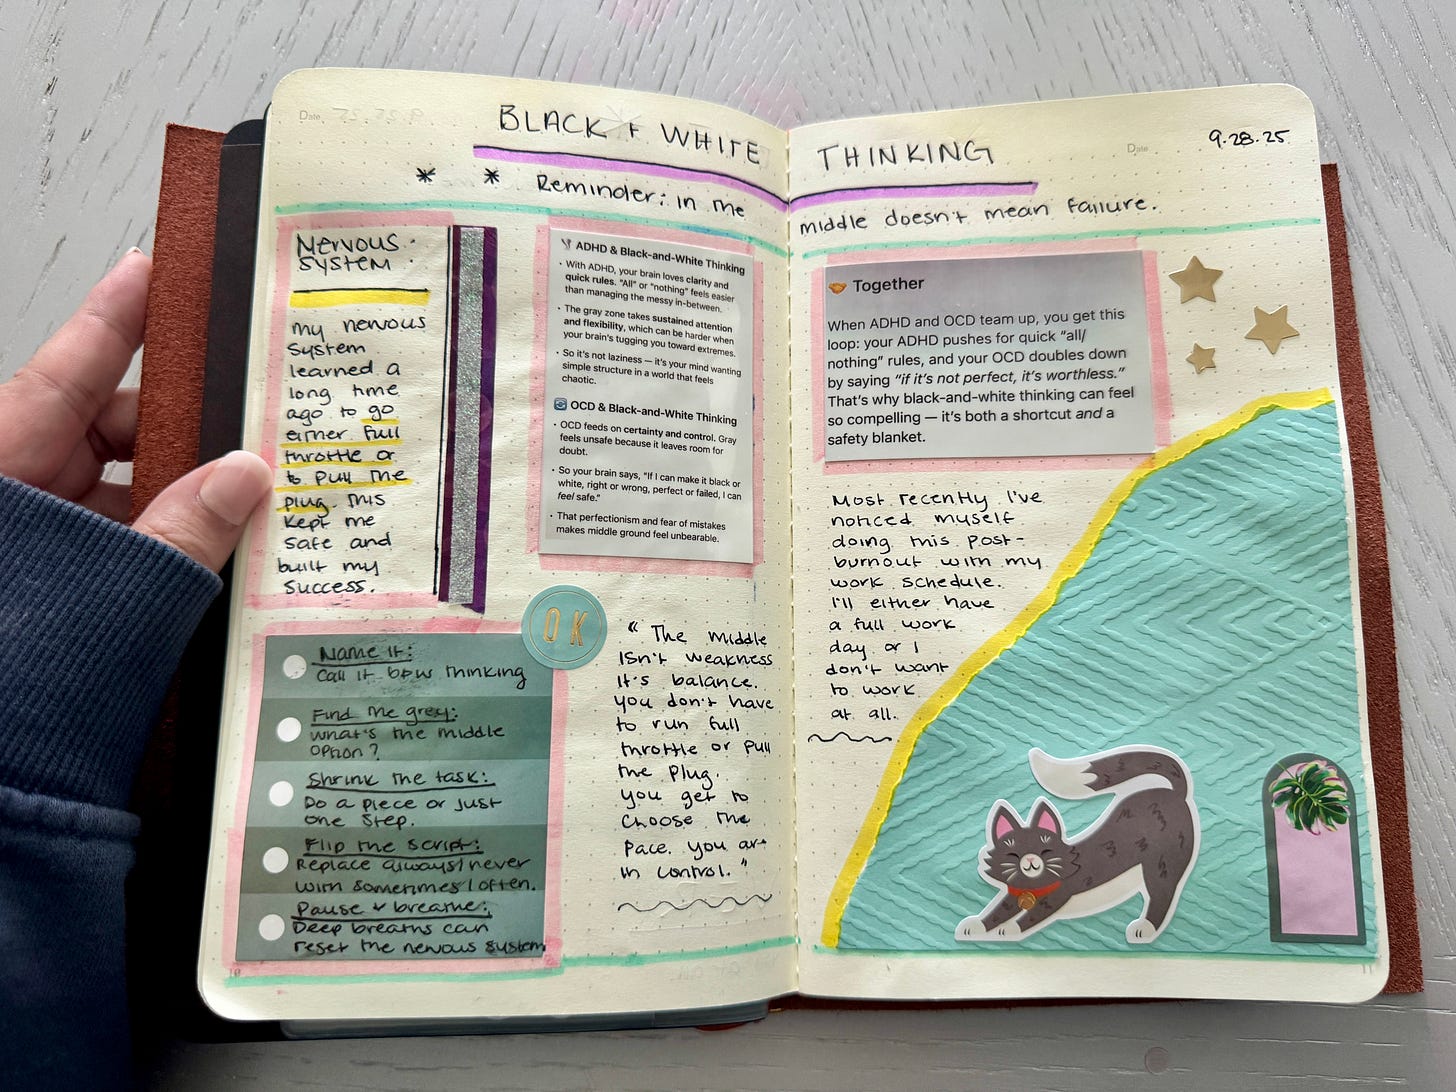 Date
BLACK + WHITE THINKING
Date
9.28.25
* * Reminder: in the middle doesn't mean failure.
NERVOUS
SYSTEM:
my nervous
system
learned a
long time
ago to go
either full
throttle or
to pull the
plug. This
kept me
safe and
built my
success.
ADHD & Black-and-White Thinking
• With ADHD, your brain loves clarity and
quick rules. "All" or "nothing" feels easier
than managing the messy in-between.
• The gray zone takes sustained attention
and flexibility, which can be harder when
your brain's tugging you toward extremes.
• So it's not laziness — it's your mind wanting
simple structure in a world that feels
chaotic.
OCD & Black-and-White Thinking
• OCD feeds on certainty and control. Gray
feels unsafe because it leaves room for
doubt.
• So your brain says, "If I can make it black or
white, right or wrong, perfect or failed, I can
feel safe."
• That perfectionism and fear of mistakes
makes middle ground feel unbearable.
OK
Name it:
Call it b+w thinking
Find the grey:
what's the middle
option?
Shrink the task:
Do a piece or just
one step.
Flip the script:
Replace always/never
with sometimes/often.
Pause + breathe:
Deep breaths can
reset the nervous system
"The middle
isn't weakness
it's balance.
You don't have
to run full
throttle or pull
the plug.
You get to
choose the
pace. You are
in control."
Together
When ADHD and OCD team up, you get this
loop: your ADHD pushes for quick "all/
nothing" rules, and your OCD doubles down
by saying "if it's not perfect, it's worthless."
That's why black-and-white thinking can feel
so compelling — it's both a shortcut and a
safety blanket.
Most recently I've
noticed myself
doing this post-
burnout with my
work schedule.
I'll either have
a full work
day or I
don't want
to work
at all.